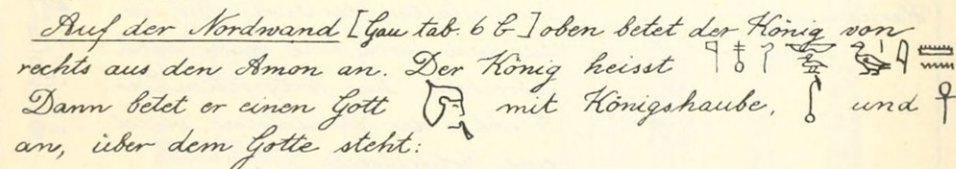 Auf der Nordwand [Gau tab. 6 b] oben betet der König von
rechts aus den Amon an. Der König heisst 𓊹𓄤 𓅭 𓇋𓏠𓈖
Dann betet er einen Gott mit Königshaube, und 𓋹
an, über dem Gotte steht: